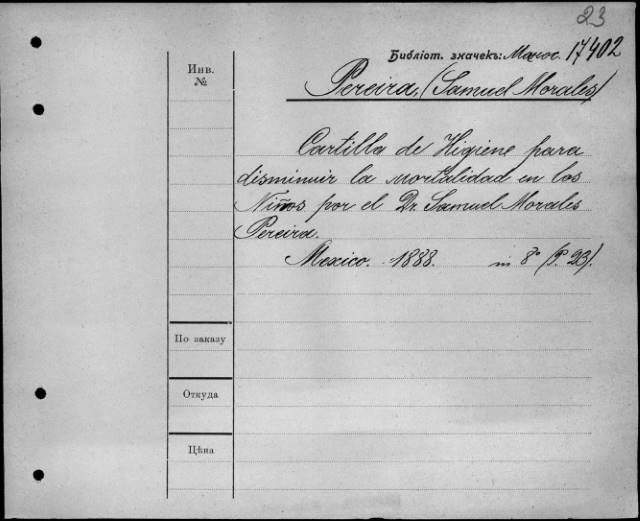 23
Библіот. значекъ: 17402
Инв.
№
Pereira, (Samuel Morales)
Cartilla de Higiene para
disminuir la mortalidad en los
Niños por el Dr. Samuel Morales
Pereira.
Mexico. 1888. in 8° (P. 23).
По заказу
Откуда
Цѣна